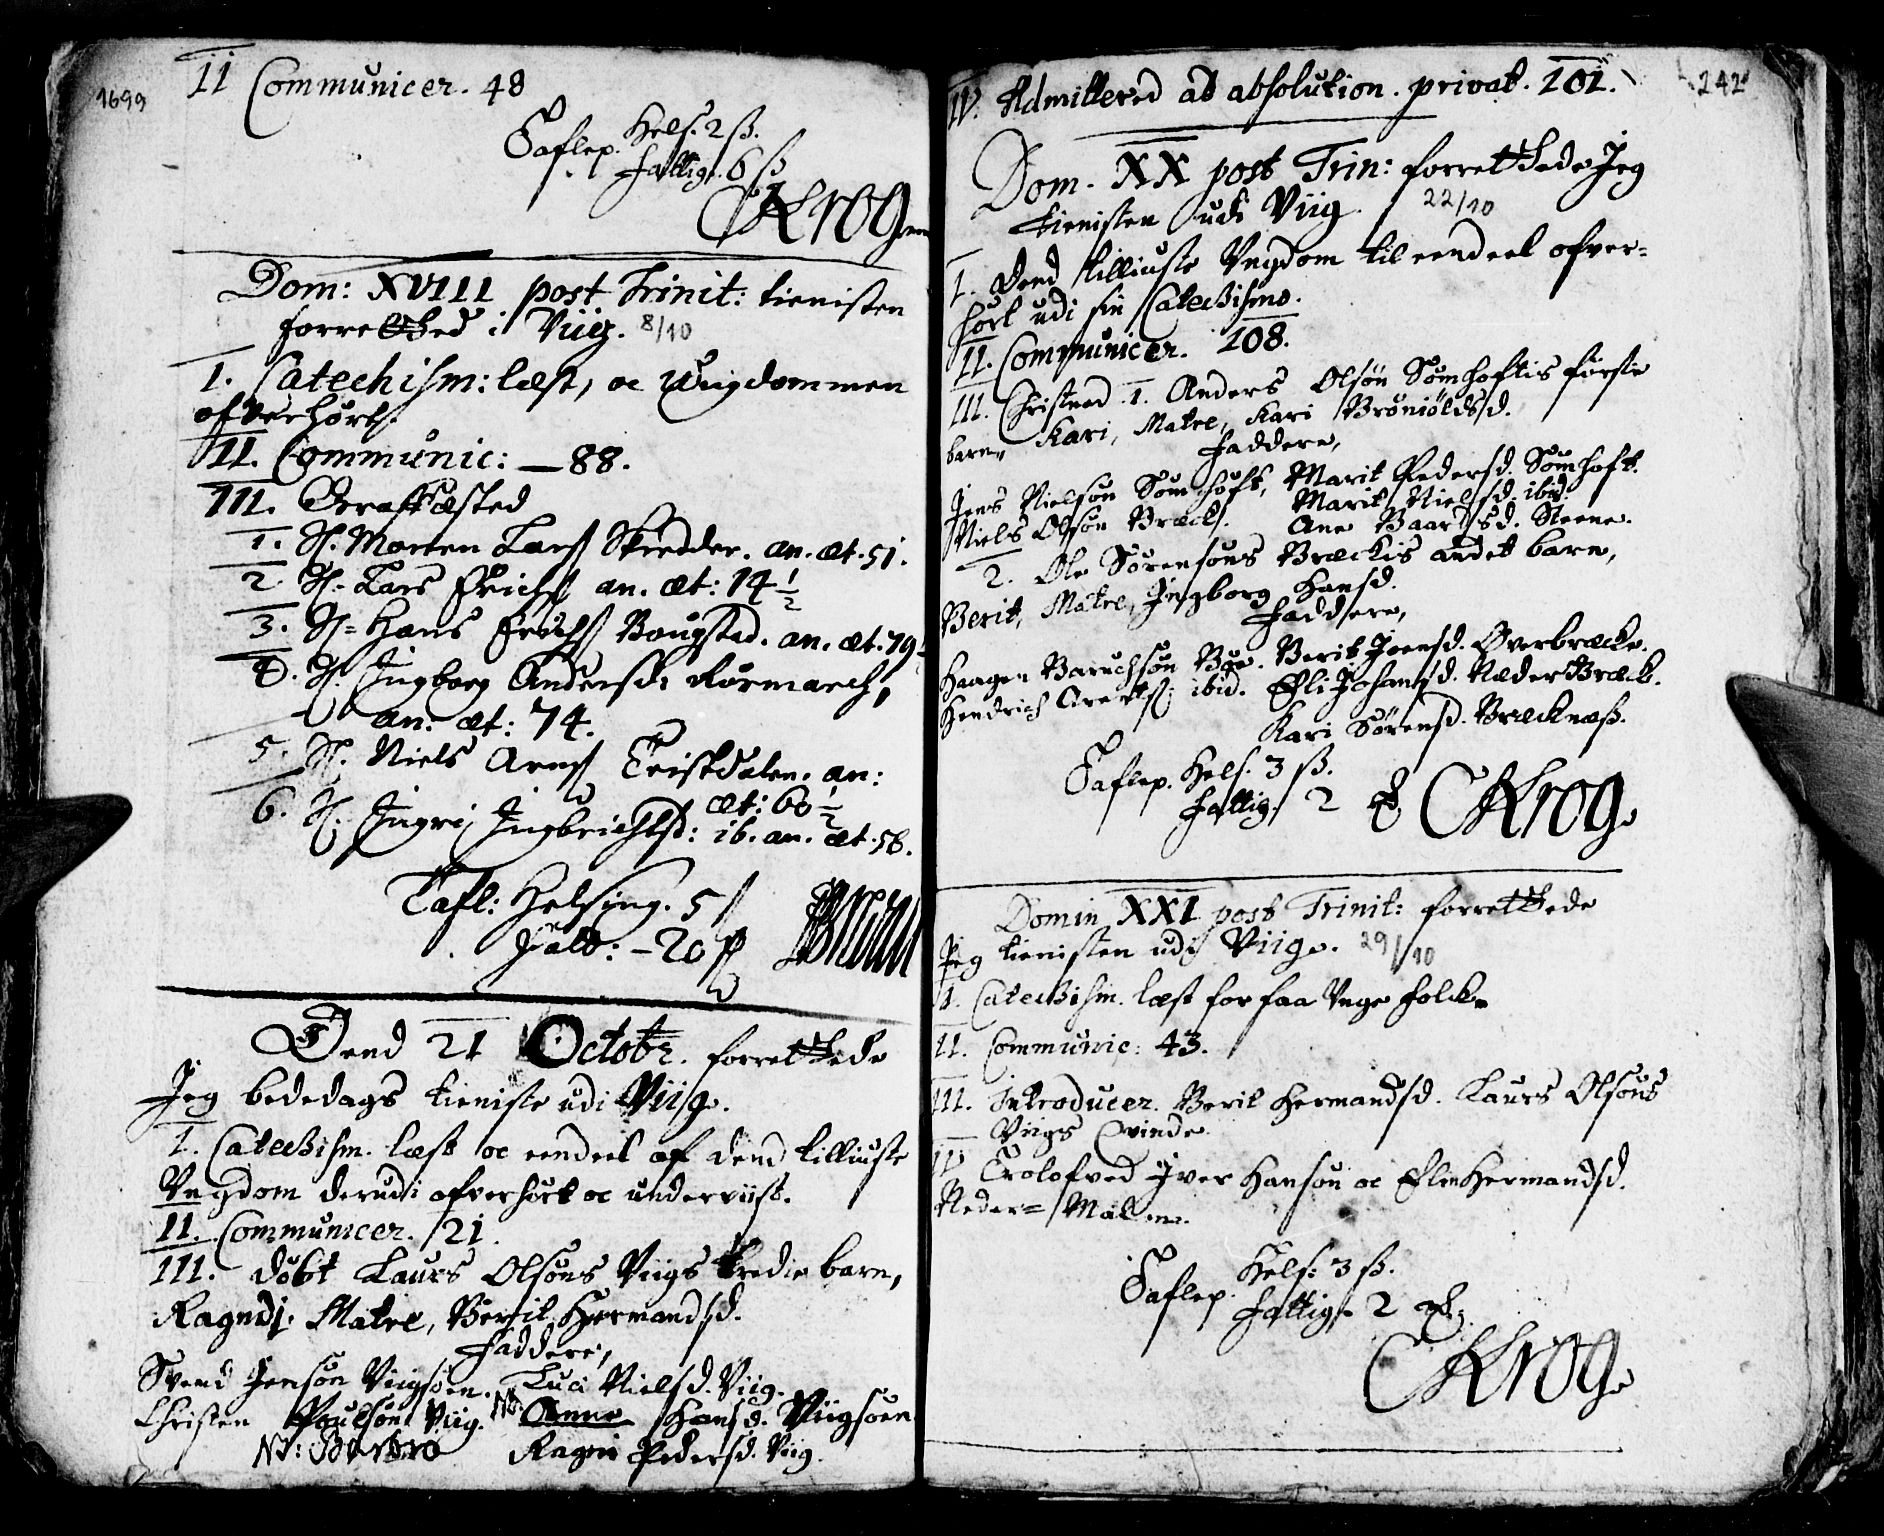 1699
II Communicer. 48
Taflep. Hels. 2 ß.
fattig. 6 ß
CKrog
Dom: XVIII post Trinit: tienisten
forretted i Viig. 8/10
I. Catechism: læst, oc Ungdommen
ofverhört.
II. Communic: — 88.
III. Græffæsted
1. S. Morten Larsß Skredder. an. æt. 51.
2. S. Lars Erichß an. æt: 14 1/2
3. S. Hans Erichß Bougstad. an. æt. 79 1/2
4. S. Ingborg Andersd: Rørmarch,
an: æt: 74.
5. S. Niels Arnß Tristdalen. an:
æt: 60 1/2
6. S. Ingri Ingbrichtsd: ib. an. æt. 58.
Tafl: Helsing. 5 ß
fatt: - 20 ß
Dend 21 Octobr. forrettede
Jeg bededags tieniste udi Viig.
I. Catechism. læst oc eendeel af dend tilliuste
Vngdom derudi ofverhört oc underviist.
II. Communicer. 21.
III. döbt Laurs Olsöns Viigs tredie barn,
Ragndi. Matre, Berit Hermandsd.
Faddere,
Svend Jensön Viigsöen. Luci Nielsd. Viig.
Christen Poulsön Viig. NB. Anne Hansd. Viigsöen
NB: Barbro Ragni Pedersd. Viig.
242
IV. Admittered ad absolution. privat. 101.
Dom. XX post Trin: forrettede Jeg
tienisten udi Viig. 22/10
I. Dend tilliuste Vngdom til eendeel ofver-
hört udi sin Catechismo.
II. Communicer. 108.
III. Christned 1. Anders Olsön Sömhoftis förste
barn, Kari, Matre, Kari Bröniöldsd.
Faddere,
Jens Nielsön Sömhoft, Marit Pedersd. Sömhoft.
Niels Olsön Bræck. Marit Nielsd. ibid.
Ane Baardsd. Steene.
2. Ole Sörensöns Bræckis andet barn,
Berit, Matre, Ingborg Hansd.
Faddere,
Haagen Baruchsön Bue. Berit Joensd. Overbræcke.
Hendrich Arentß. ibid. Eli Johansd. Næder Bræck.
Kari Sörensd. Bræcknæß.
Taflep. Hels. 3 ß.
fattig. 2 ß CKrog.
Domin XXI post Trinit: forrettede
Jeg tienisten udi Viig. 29/10
I. Catechism. læst for faa Unge folck.
II. Communic: 43.
III. Introducer. Berit Hermandsd. Laurs Olsöns
Viigs Qvinde.
IV. Trolofved Iver Hansön oc Elin Hermandsd.
Neder= Malm.
Taflep. Hels: 3 ß.
fattig. 2 ß.
CKrog.